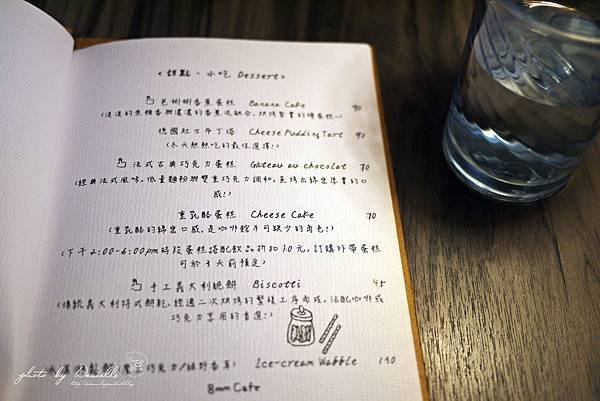 <甜點、小吃 Dessert>
芭娜娜香蕉蛋糕 Banana Cake 90
德國起士布丁塔 Cheese Pudding Tart 90
(冬天熱熱吃的最佳選擇!)
法式古典巧克力蛋糕 Gateau au chocolat 70
(經典法式風味,低量麵粉與雙重巧克力調和,
感!)
重乳酪蛋糕 Cheese Cake 70
(重乳酪的綿密口感,是咖啡館不可缺少的角色!)
(下午2:00-6:00pm時段蛋糕搭配飲品折扣10元,訂購外帶蛋糕
可於3天前預定)
手工義大利脆餅 Biscotti 45
(傳統義大利特式餅乾,經過二次烘烤的繁複工序而成,沾配咖啡或
巧克力享用的首選!)
Ice-cream Waffle 130
8mm Cafe
photo by Danielle